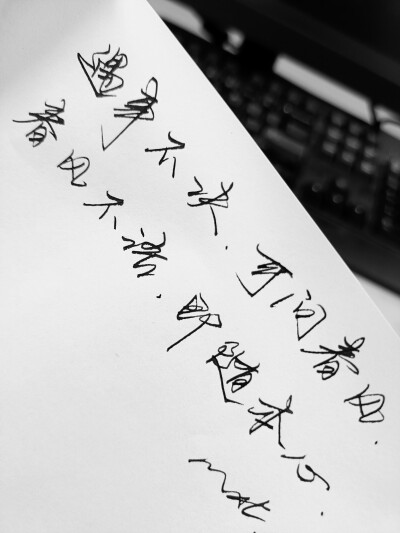 遇事不决.可问春风.
春风不语.即随本心